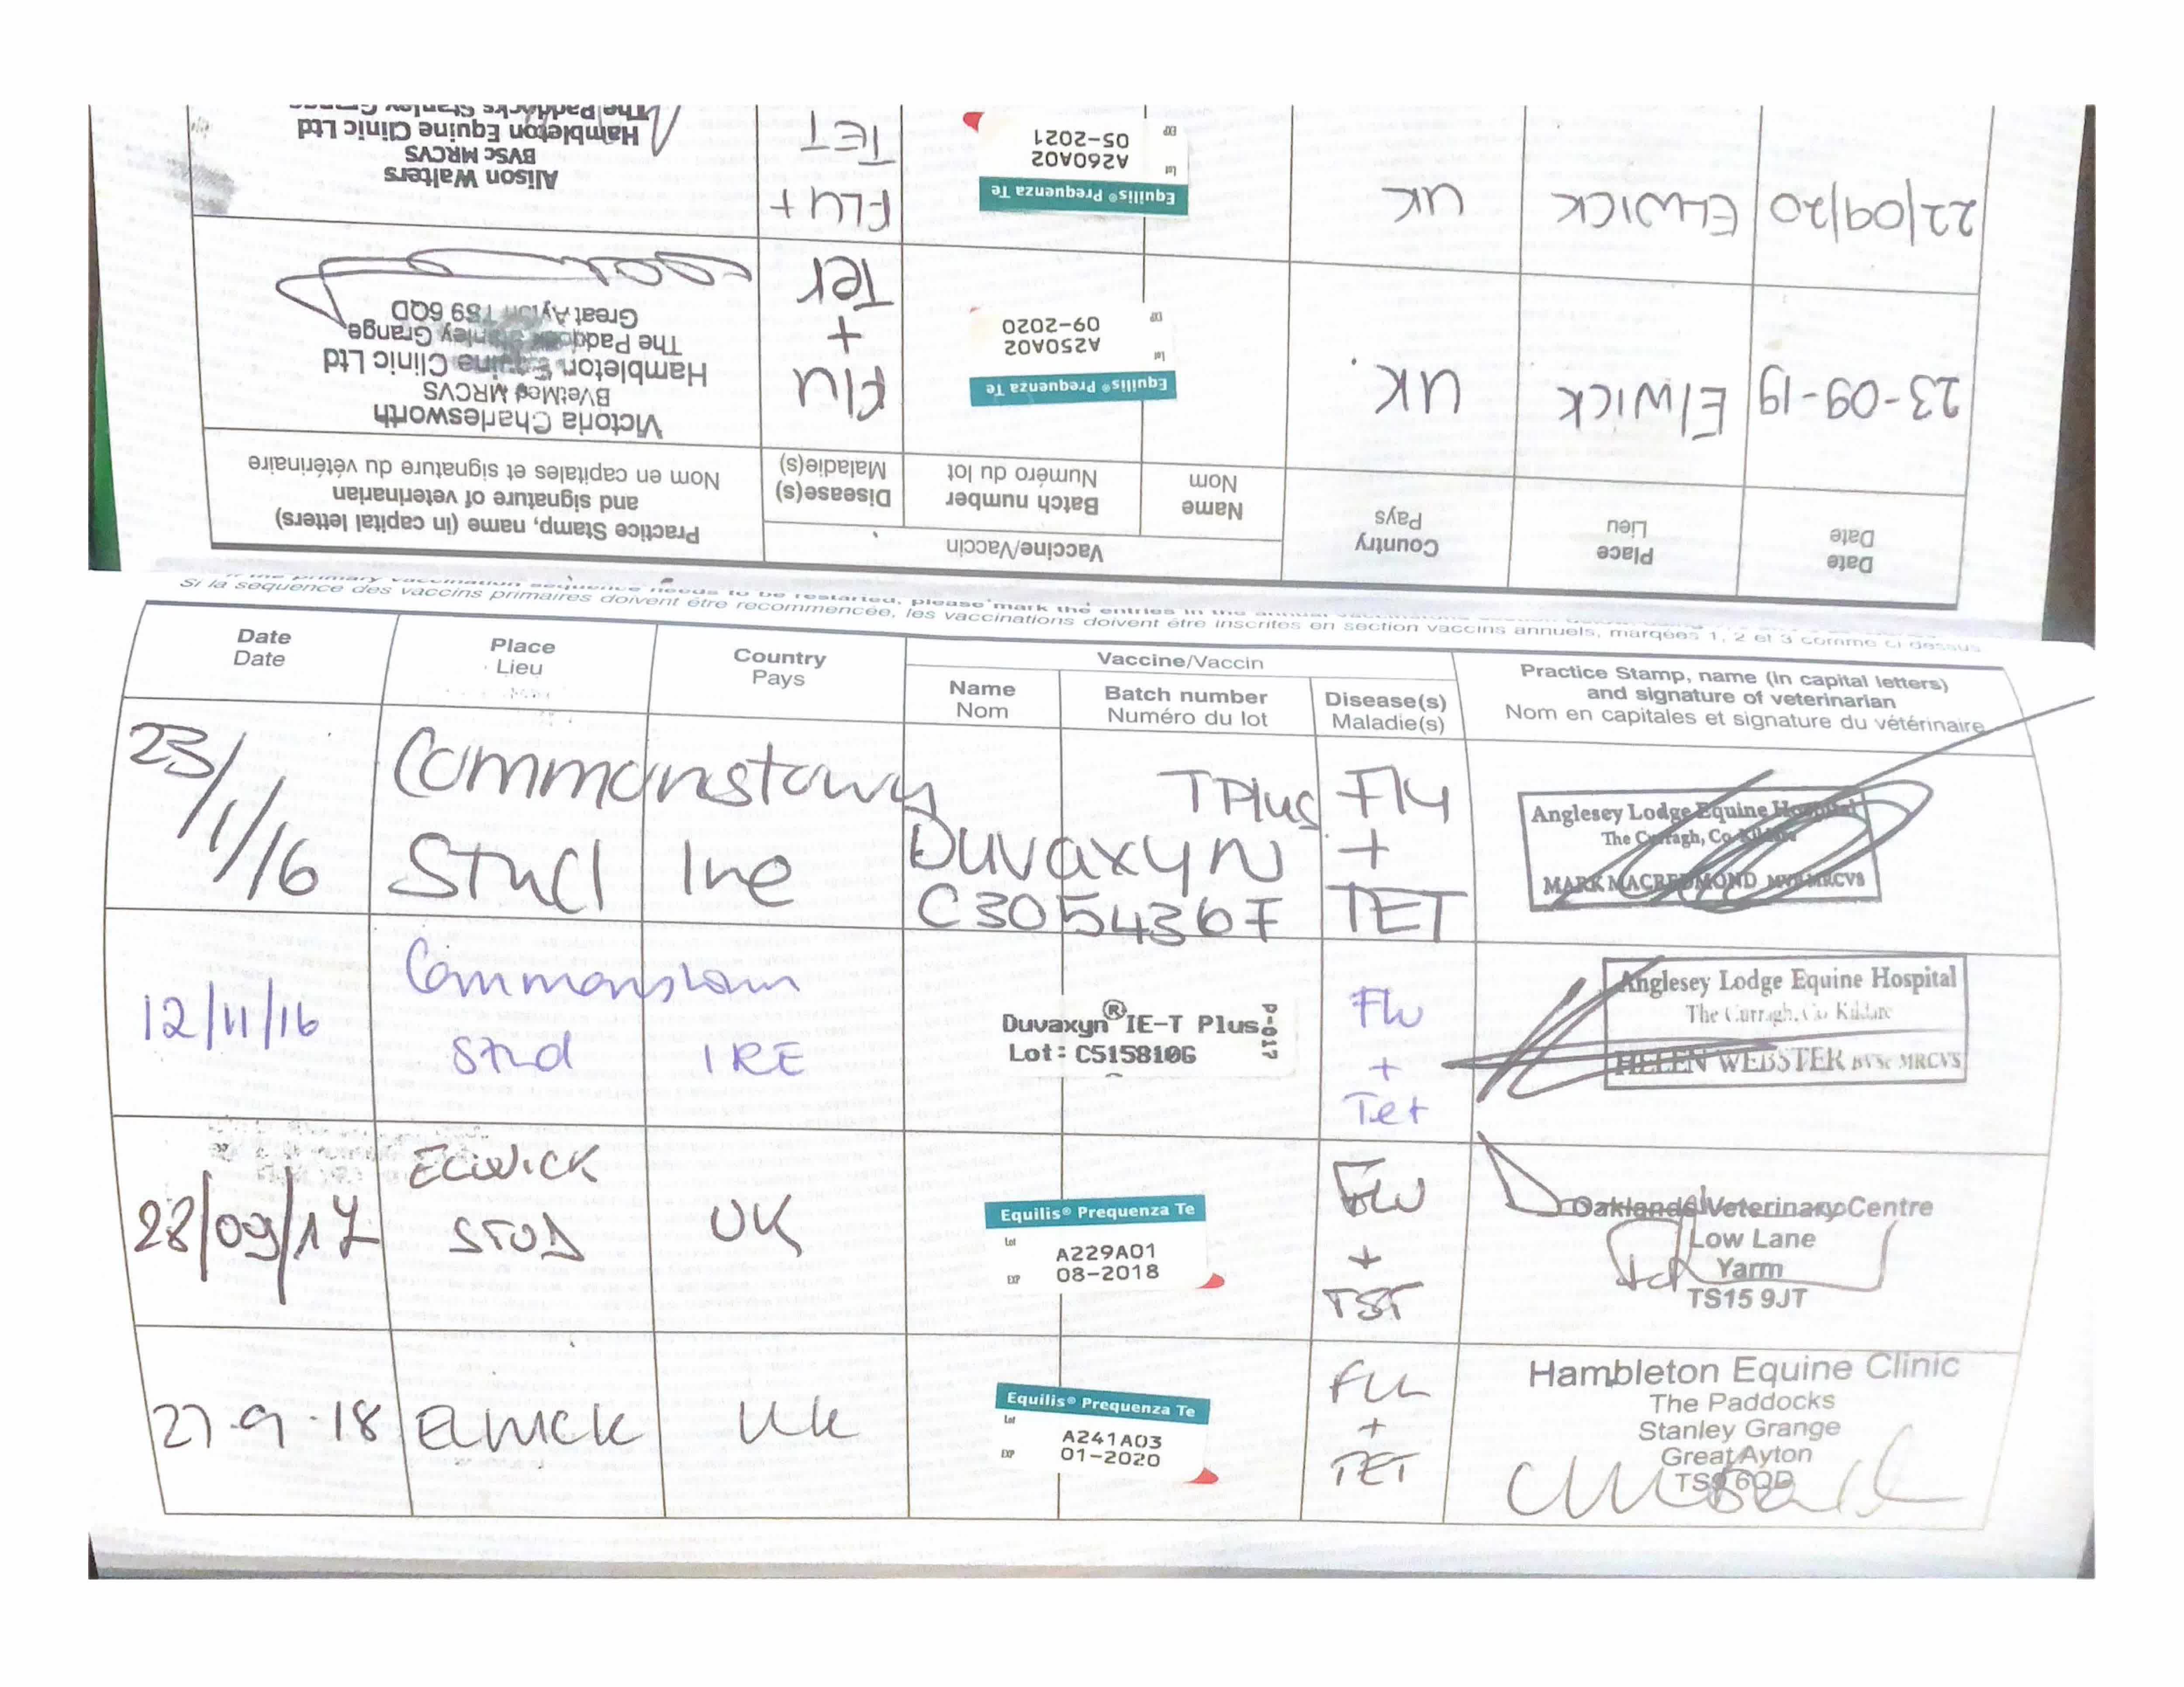 The Paddocks Stanley Grange
Hambleton Equine Clinic Ltd
BVSc MRCVS
Alison Walters
FLU +
TET
Equilis® Prequenza Te
Lot A260A02
EXP 05-2021
UK
ELWICK
22/09/20
Victoria Charlesworth
BVetMed MRCVS
Hambleton Equine Clinic Ltd
The Paddocks Stanley Grange
Great Ayton TS9 6QD
Flu
+
Tet
Equilis® Prequenza Te
Lot A250A02
EXP 09-2020
UK.
Elwick
23-09-19
Practice Stamp, name (in capital letters)
and signature of veterinarian
Nom en capitales et signature du vétérinaire
Vaccine/Vaccin
Disease(s)
Maladie(s)
Batch number
Numéro du lot
Name
Nom
Country
Pays
Place
Lieu
Date
Date
If the primary vaccination sequence needs to be restarted, please mark the entries in the
Si la sequence des vaccins primaires doivent être recommencée, les vaccinations doivent être inscrites en section vaccins annuels, marqées 1, 2 et 3 comme ci dessus
Date
Date
Place
Lieu
Country
Pays
Vaccine/Vaccin
Name
Nom
Batch number
Numéro du lot
Disease(s)
Maladie(s)
Practice Stamp, name (in capital letters)
and signature of veterinarian
Nom en capitales et signature du vétérinaire
23/1/16
Commonstown
Stud
Ire
TPlus
Duvaxyn
C305436F
Flu
+
TET
Anglesey Lodge Equine Hospital
The Curragh, Co Kildare
MARK MACREDMOND MVB MRCVS
12/11/16
Commonstown
Stud
IRE
Duvaxyn® IE-T Plus
Lot: C515810G
P-017
Flu
+
Tet
Anglesey Lodge Equine Hospital
The Curragh, Co Kildare
HELEN WEBSTER BVSc MRCVS
28/09/17
ELWICK
STUD
UK
Equilis® Prequenza Te
Lot A229A01
EXP 08-2018
FLU
+
TET
Oaklands Veterinary Centre
Low Lane
Yarm
TS15 9JT
27-9-18
Elwick
UK
Equilis® Prequenza Te
Lot A241A03
EXP 01-2020
FLU
+
TET
Hambleton Equine Clinic
The Paddocks
Stanley Grange
Great Ayton
TS9 6QD